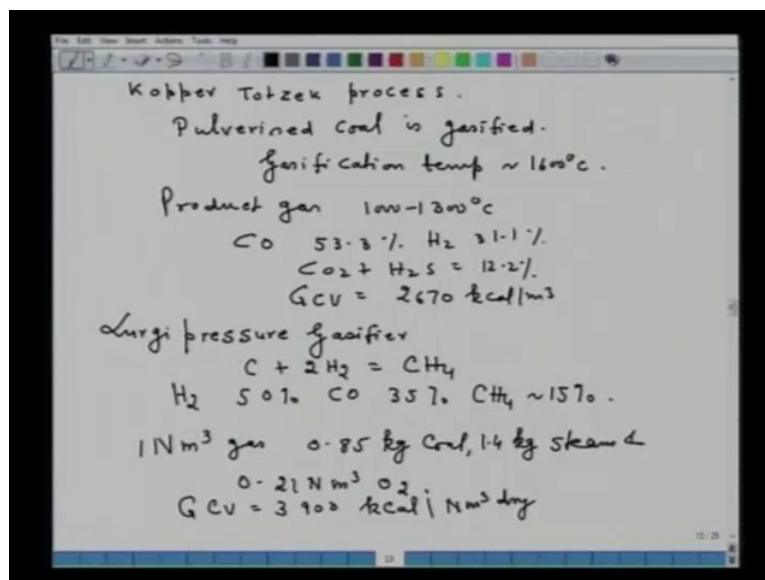 File Edit View Insert Actions Tools Help
Kopper Totzek process.
Pulverined coal is gasified.
Gasification temp ~ 1600°C.
Product gas 1000-1300°C
CO 53.3% H2 31.1%
CO2 + H2S = 12.2%
GCV = 2670 kcal/m3
Lurgi pressure Gasifier
C + 2H2 = CH4
H2 50% CO 35% CH4 ~15%.
1 Nm3 gas 0.85 kg Coal, 1.4 kg steam &
0.21 Nm3 O2.
GCV = 3900 kcal/Nm3 dry